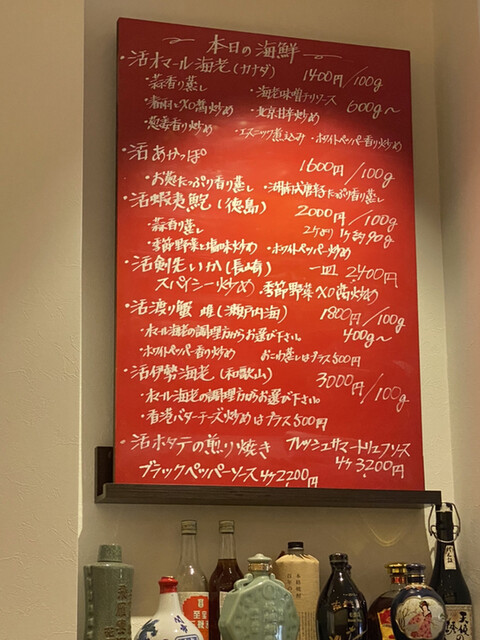 本日の海鮮
・活オマール海老(カナダ) 1400円/100g
・蒜香り蒸し ・海老味噌チリソース 600g〜
XO醤炒め ・北京甘辛炒め
・葱姜香り炒め ・エスニック煮込み ・ホワイトペッパー香り炒め
・活あかっぽ 1600円/100g
・お葱たっぷり香り蒸し ・湖南式唐辛子たっぷり香り蒸し
・活蝦夷鮑(徳島) 2000円/100g
・蒜香り蒸し 2ケより 1ケ約90g
・季節野菜と塩味炒め ・ホワイトペッパー炒め
・活剣先いか(長崎) 一皿 2,400円
スパイシー炒め ・季節野菜XO醤炒め
・活渡り蟹 雌(瀬戸内海) 1800円/100g
・オマール海老の調理方からお選び下さい。 400g〜
・ホワイトペッパー香り炒め おこわ蒸しはプラス500円
・活伊勢海老(和歌山) 3000円/100g
・オマール海老の調理方からお選び下さい。
・香港バターチーズ炒めはプラス500円
・活ホタテの煎り焼き フレッシュサマートリュフソース
4ケ3,200円
ブラックペッパーソース4ケ2,200円